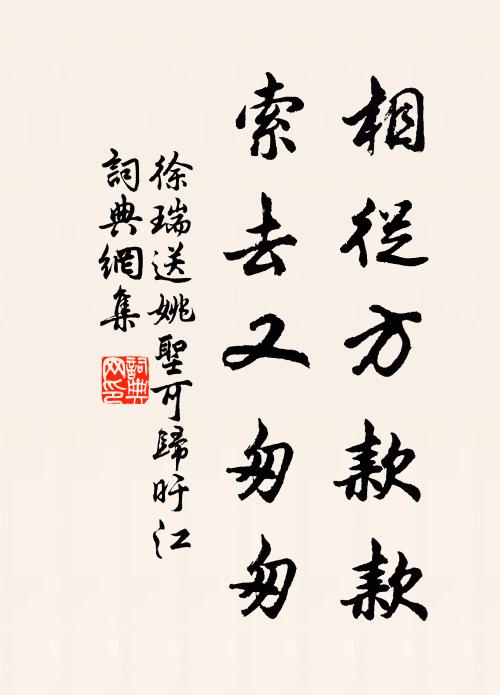 相從方款款
索去又匆匆
徐瑞送姚聖可歸盱江
詞典網集
詞典网印